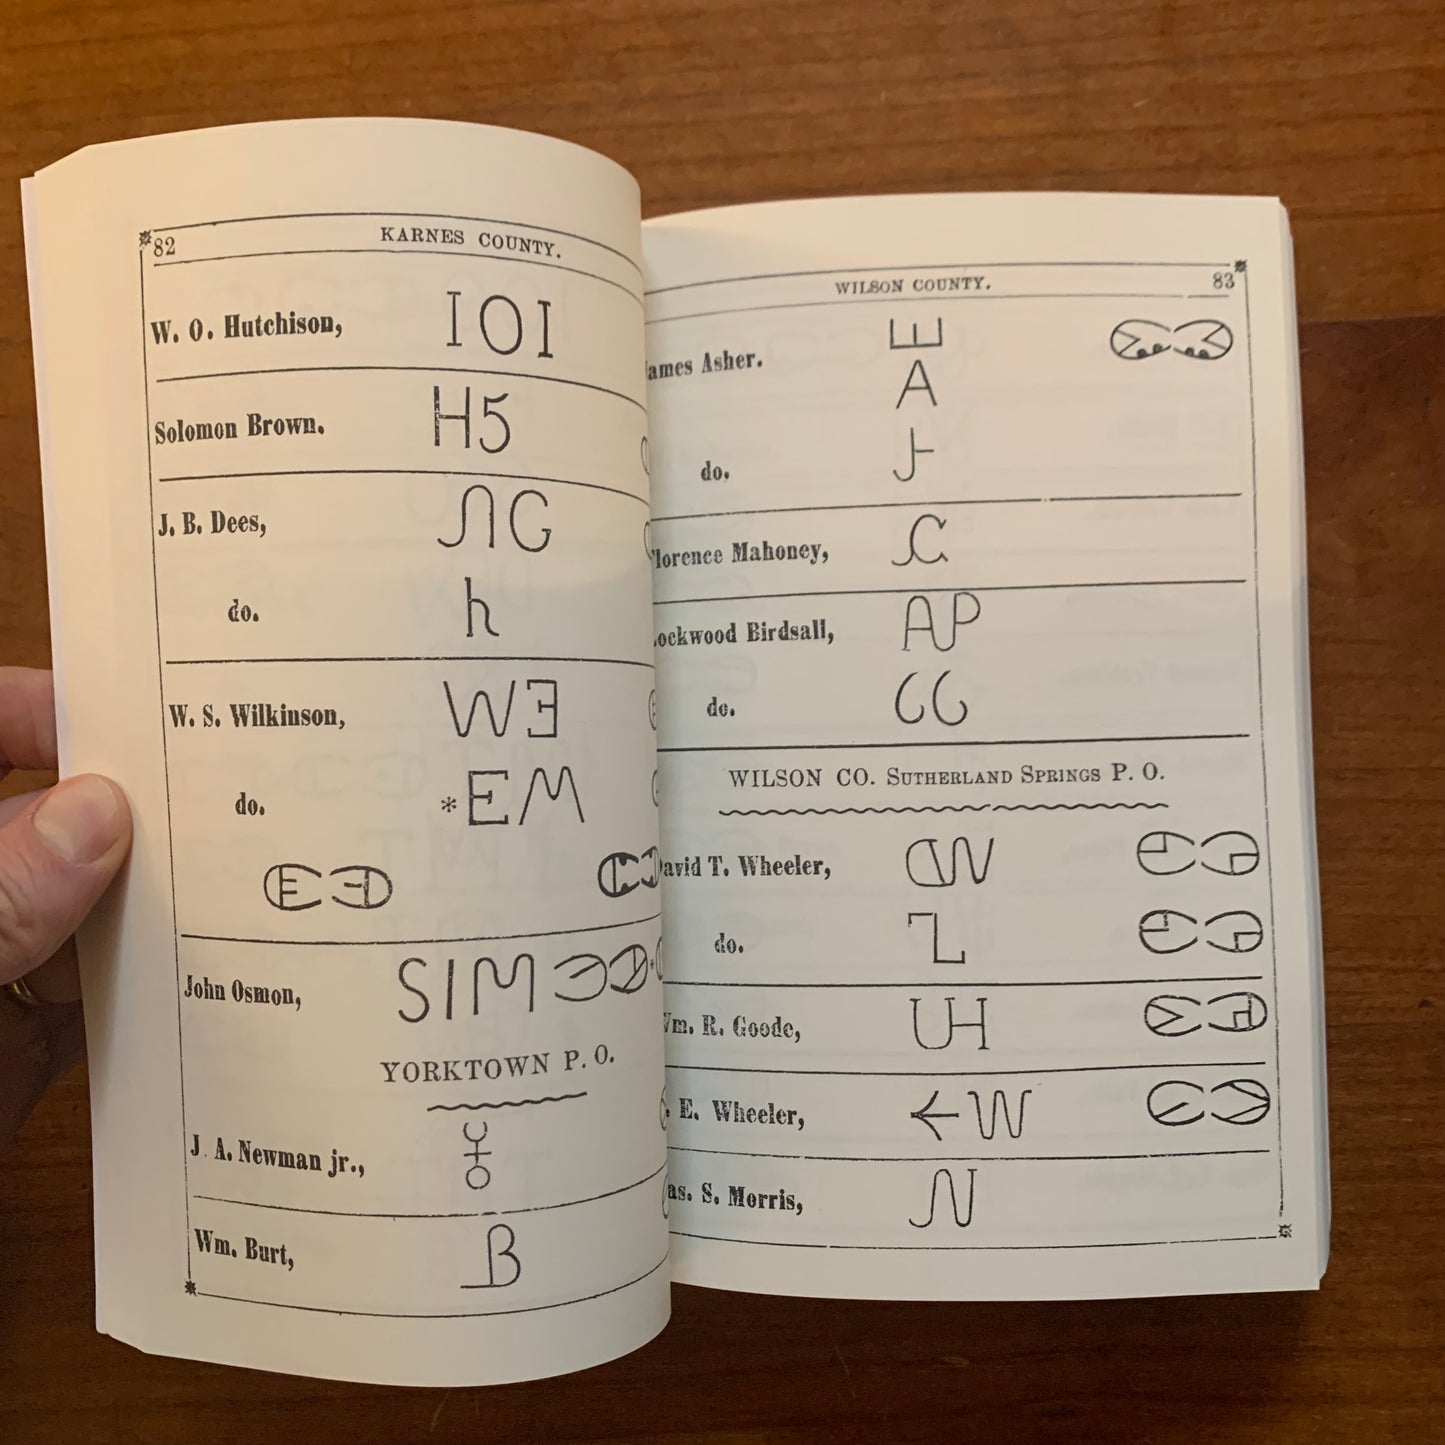 82 KARNES COUNTY.
W. O. Hutchison, IOI
Solomon Brown. H5
J. B. Dees,
do. h
W. S. Wilkinson,
do. *EM
John Osmon, SIM
YORKTOWN P. O.
J. A. Newman jr.,
Wm. Burt,
WILSON COUNTY. 83
ames Asher.
A
do.
lorence Mahoney,
ockwood Birdsall, AP
do.
WILSON CO. SUTHERLAND SPRINGS P. O.
avid T. Wheeler,
do.
m. R. Goode, UH
E. Wheeler,
as. S. Morris, N